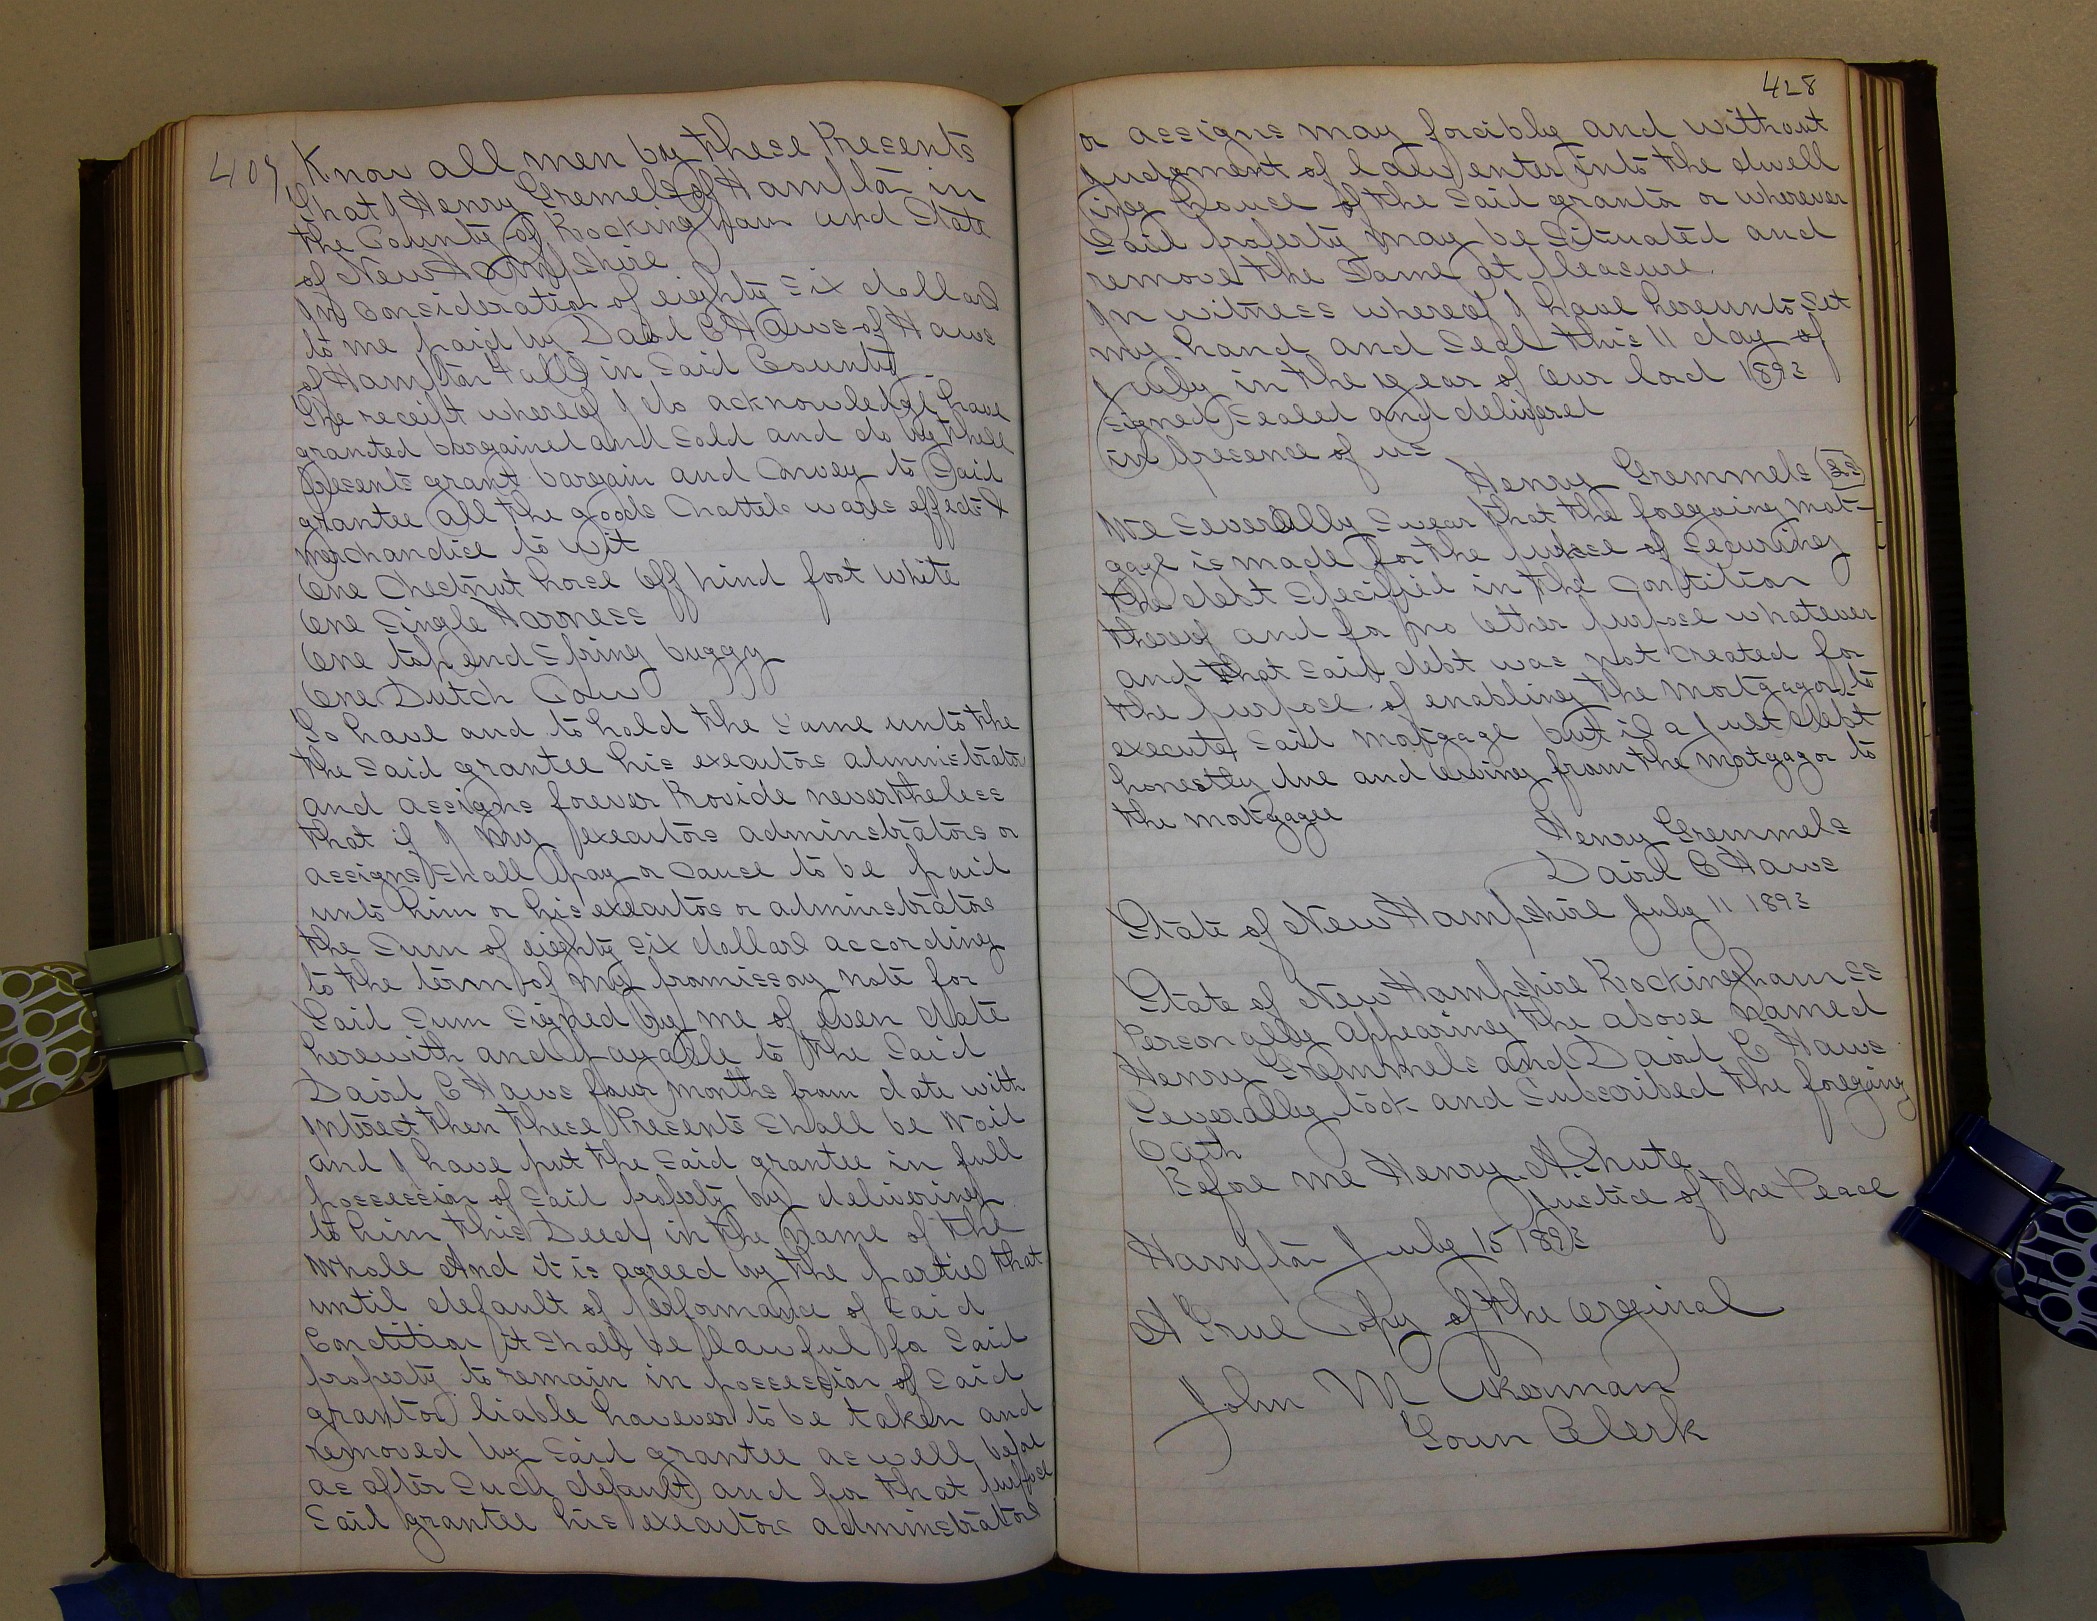 409,
Know all men by these Presents
That I Henry Gremels of Hampton in
the County of Rockingham and State
of New Hampshire
In consideration of eighty six dollars
to me paid by David C Haws of Haws
of Hampton Falls in Said County
The receipt whereof I do acknowledge have
granted bargained and sold and do by these
Presents grant bargain and Convey to Said
grantee all the goods Chattels wares effects &
merchandise to wit
One Chestnut horse off hind foot white
One Single Harness
One top end Spring buggy
One Dutch Cow
To have and to hold the same unto the
the said grantee his executors administrators
and assigns forever Provide nevertheless
that if I my executors adminstrators or
assigns shall pay or cause to be paid
unto him or his executors or adminstrators
the sum of eighty six dollars according
to the term of my promissoy note for
Said sum signed by me of even date
herewith and payable to the Said
David C Haws four months from date with
Interest then these Presents shall be Void
and I have put the said grantee in full
possession of said property by delivering
to him this Deed in the name of the
Whole And it is agreed by the parties that
until default of performance of said
Condition it shall be lawful for Said
property to remain in possession of said
grantor liable however to be taken and
removed by said grantee as well before
as after such default and for that purpose
Said grantee his executors adminstrators
428
or assigns may forcibly and without
Judgment of law enter into the dwell
ing house of the said grantor or wherever
Said property may be Situated and
remove the Same at pleasure.
In witness whereof I have hereunto set
my hand and Seal this 11 day of
July in the year of Our lord 1893
signed sealed and delivered
in presence of us
Henry Gremmels
We Severally swear that the foregoing mot-
gage is made for the purpose of securing
the debt specified in the contition
thereof and for no other purpose whatever
and that said debt was not created for
the purpose of enabling the mortgagor to
execute said mortgage but is a just debt
honestly due and owing from the mortgagor to
the mortgagee
Henry Gremmels
David C Haws
State of New Hampshire July 11 1893
State of New Hampshire Rockingham ss
Personally appearing the above named
Henry Gremmels and David C Haws
Severally took and Subscribed the foregoing
Oath
Before me Henry A Shute
Justice of the Peace
Hampton July 15 1893
A True Copy of the orginal
John M Akerman
Town Clerk